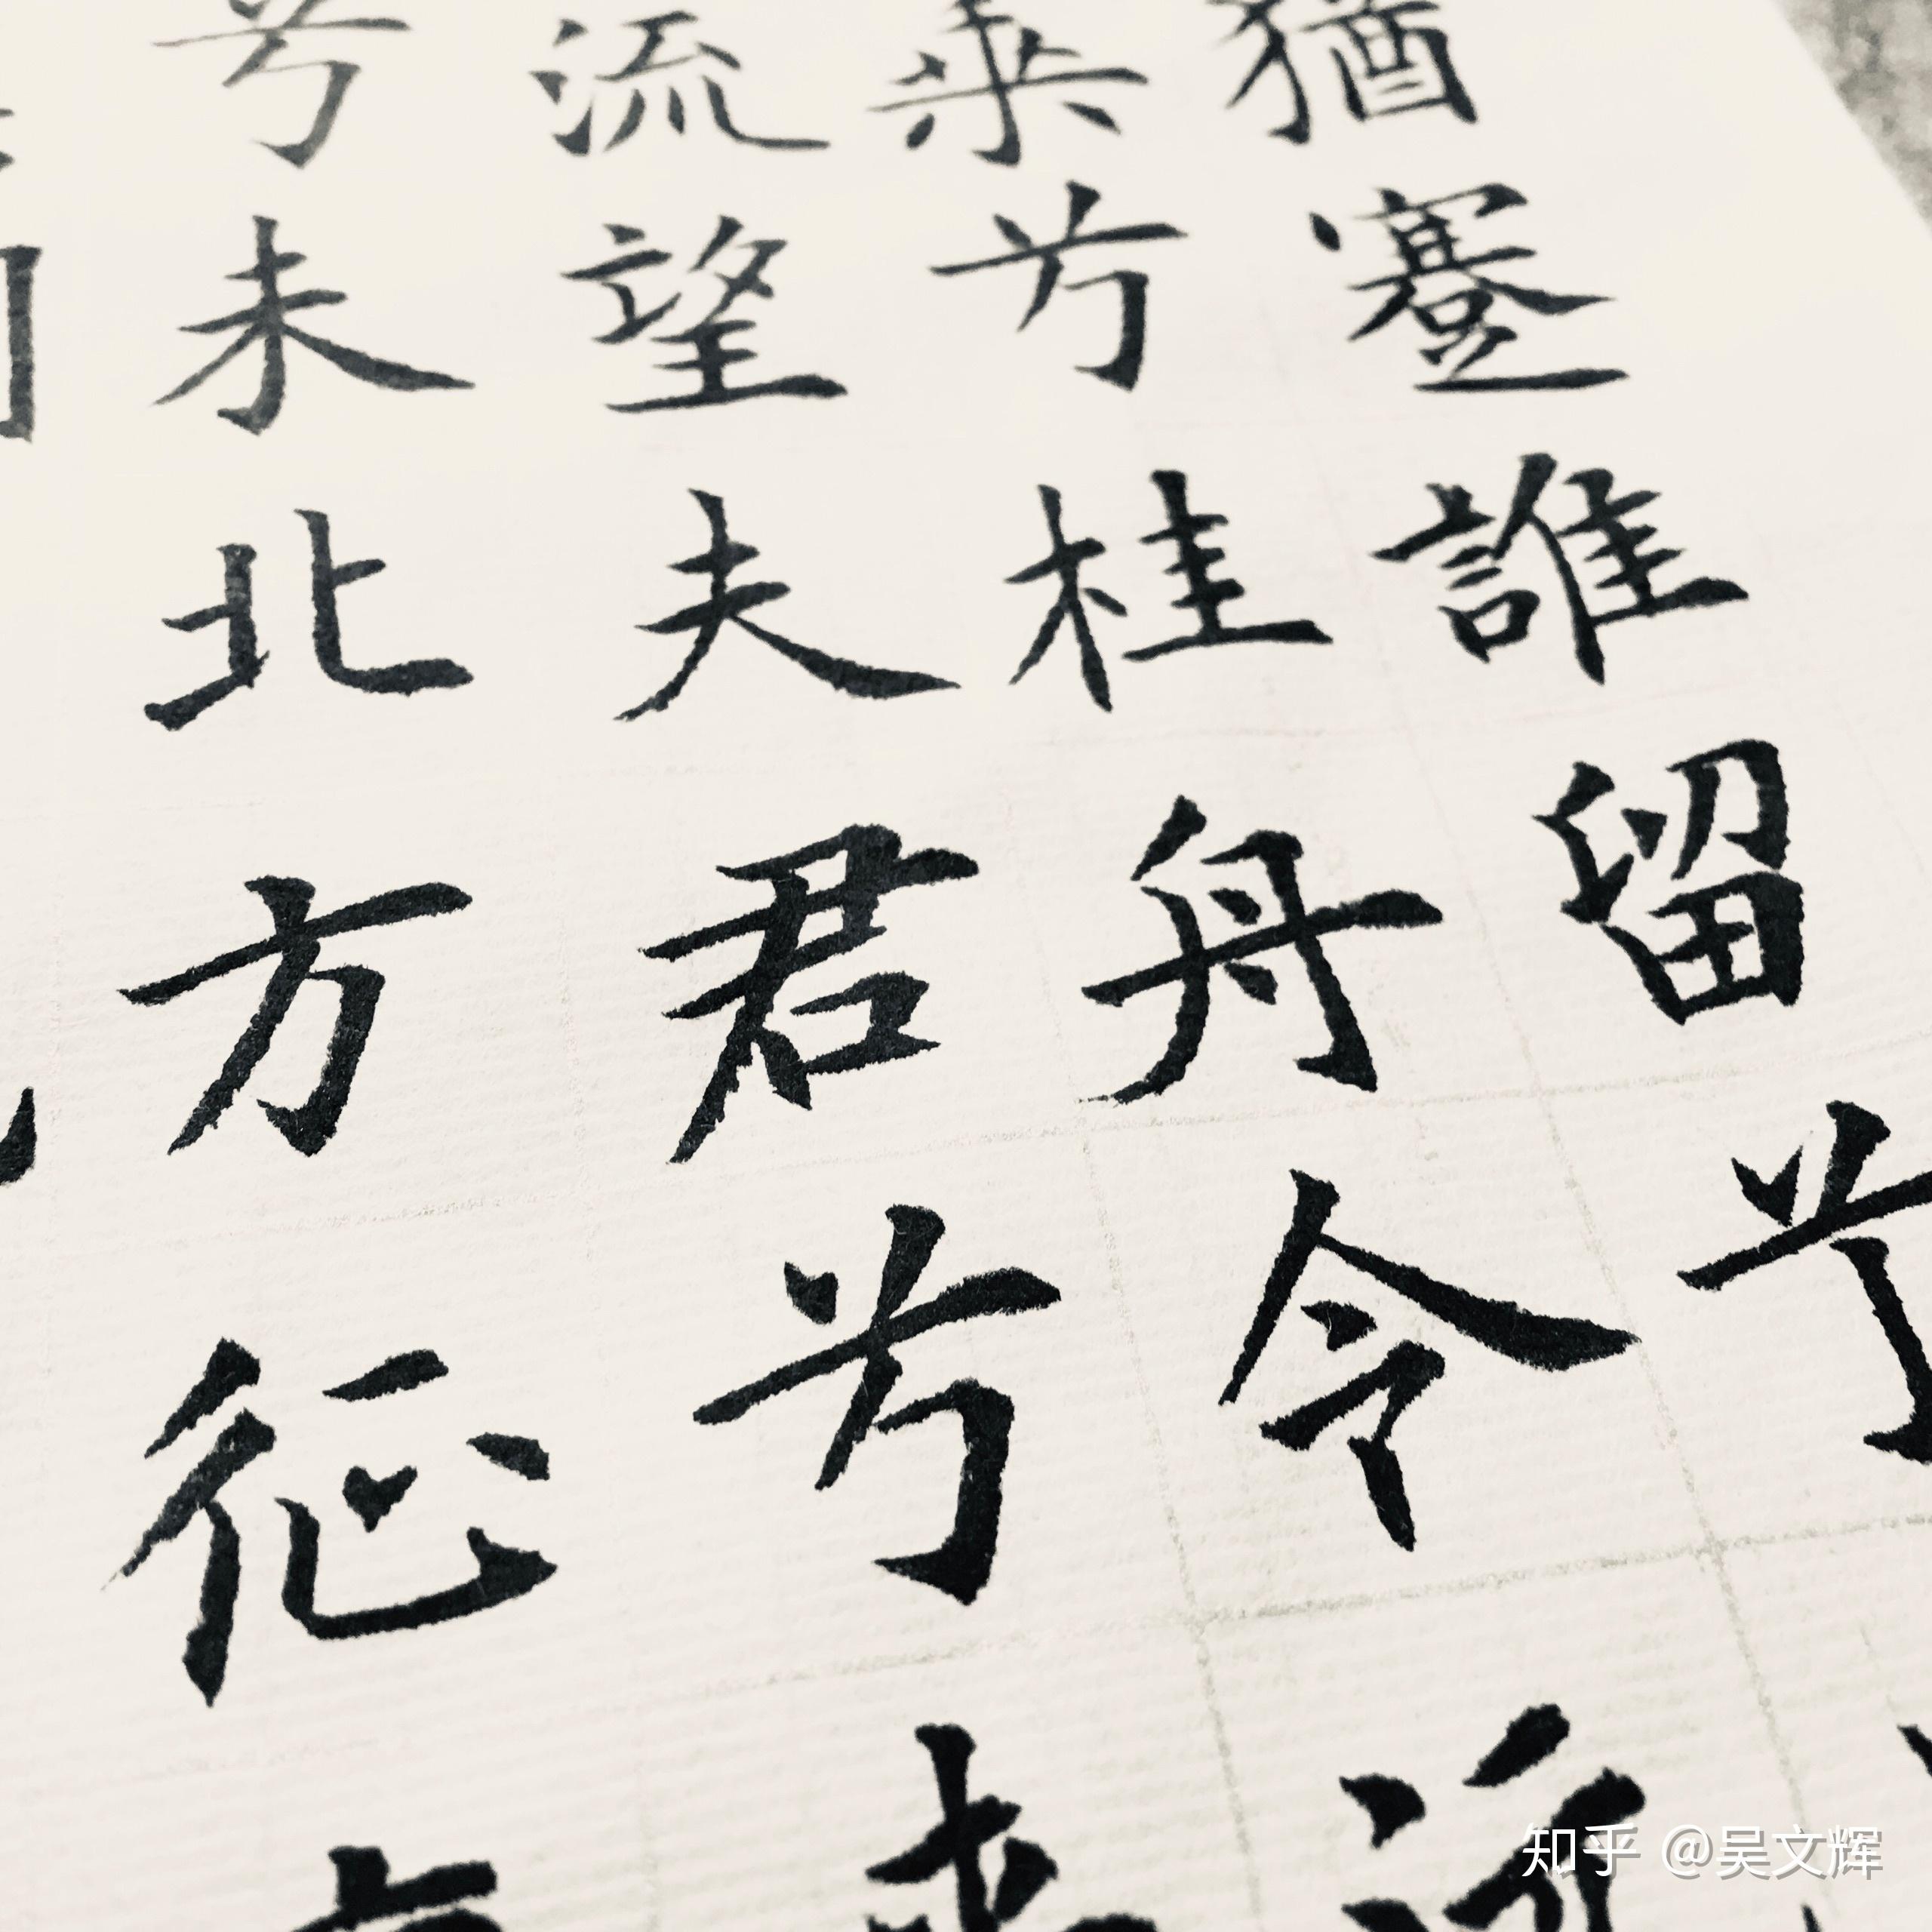 猶蹇誰留兮
乘兮桂舟令
流望夫君兮
兮未北方征
知乎 @吴文辉